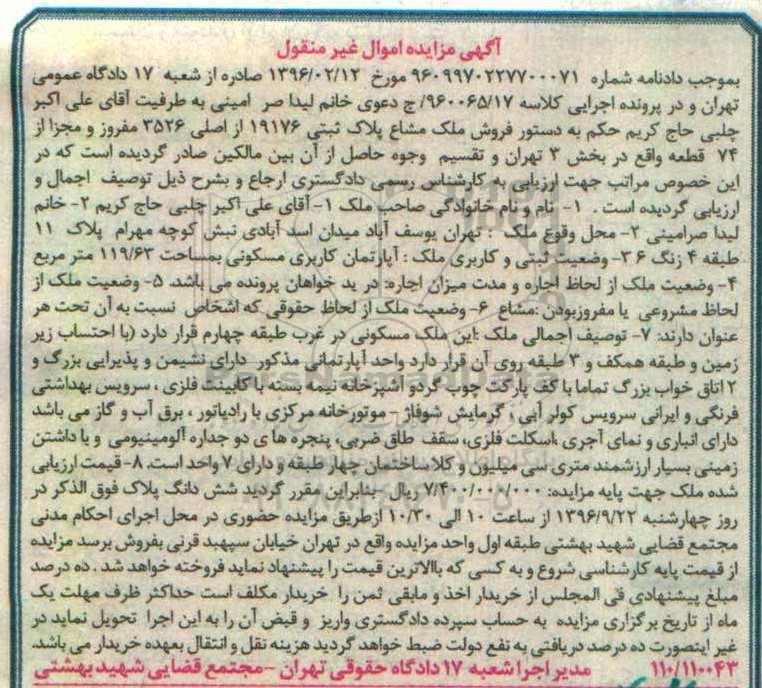 آگهی مزایده اموال غیر منقول
بموجب دادنامه شماره ۹۶۰۹۹۷۰۲۲۷۷۰۰۰۷۱ مورخ ۱۳۹۶/۰۲/۱۲ صادره از شعبه ۱۷ دادگاه عمومی
تهران و در پرونده اجرایی کلاسه ۹۶۰۰۶۵/۱۷/ ج دعوی خانم لیدا صر امینی به طرفیت آقای علی اکبر
چلبی حاج کریم حکم به دستور فروش ملک مشاع پلاک ثبتی ۱۹۱۷۶ از اصلی ۳۵۲۶ مفروز و مجزا از
۷۴ قطعه واقع در بخش ۳ تهران و تقسیم وجوه حاصل از آن بین مالکین صادر گردیده است که در
این خصوص مراتب جهت ارزیابی به کارشناس رسمی دادگستری ارجاع و بشرح ذیل توصیف اجمال و
ارزیابی گردیده است . ۱- نام و نام خانوادگی صاحب ملک ۱- آقای علی اکبر چلبی حاج کریم ۲- خانم
لیدا صرامینی ۲- محل وقوع ملک : تهران یوسف آباد میدان اسد آبادی نبش کوچه مهرام پلاک ۱۱
طبقه ۴ زنگ ۶ ۳- وضعیت ثبتی و کاربری ملک : آپارتمان کاربری مسکونی بمساحت ۱۱۹/۶۳ متر مربع
۴- وضعیت ملک از لحاظ اجاره و مدت میزان اجاره: در ید خواهان پرونده می باشد. ۵- وضعیت ملک از
لحاظ مشروعی یا مفروزبودن :مشاع ۶- وضعیت ملک از لحاظ حقوقی که اشخاص نسبت به آن تحت هر
عنوان دارند: ۷- توصیف اجمالی ملک :این ملک مسکونی در غرب طبقه چهارم قرار دارد (با احتساب زیر
زمین و طبقه همکف و ۳ طبقه روی آن قرار دارد واحد آپارتمانی مذکور دارای نشیمن و پذیرایی بزرگ و
۲ اتاق خواب بزرگ تماما با کف پارکت چوب گردو آشپزخانه نیمه بسته با کابینت فلزی ، سرویس بهداشتی
فرنگی و ایرانی سرویس کولر آبی ، گرمایش شوفاژ - موتورخانه مرکزی با رادیاتور ، برق آب و گاز می باشد
دارای انباری و نمای آجری ،اسکلت فلزی، سقف طاق ضربی، پنجره ها ی دو جداره آلومینیومی و با داشتن
زمینی بسیار ارزشمند متری سی میلیون و کلا ساختمان چهار طبقه و دارای ۷ واحد است. ۸- قیمت ارزیابی
شده ملک جهت پایه مزایده: ۷/۴۰۰/۰۰۰/۰۰۰ ریال بنابراین مقرر گردید شش دانگ پلاک فوق الذکر در
روز چهارشنبه ۱۳۹۶/۹/۲۲ از ساعت ۱۰ الی ۱۰/۳۰ ازطریق مزایده حضوری در محل اجرای احکام مدنی
مجتمع قضایی شهید بهشتی طبقه اول واحد مزایده واقع در تهران خیابان سپهبد قرنی بفروش برسد مزایده
از قیمت پایه کارشناسی شروع و به کسی که باالاترین قیمت را پیشنهاد نماید فروخته خواهد شد . ده درصد
مبلغ پیشنهادی فی المجلس از خریدار اخذ و مابقی ثمن را خریدار مکلف است حداکثر ظرف مهلت یک
ماه از تاریخ برگزاری مزایده به حساب سپرده دادگستری واریز و قبض آن را به این اجرا تحویل نماید در
غیر اینصورت ده درصد دریافتی به نفع دولت ضبط خواهد گردید هزینه نقل و انتقال بعهده خریدار می باشد.
۱۱۰/۱۱۰۰۴۳ مدیر اجرا شعبه ۱۷ دادگاه حقوقی تهران -مجتمع قضایی شهید بهشتی